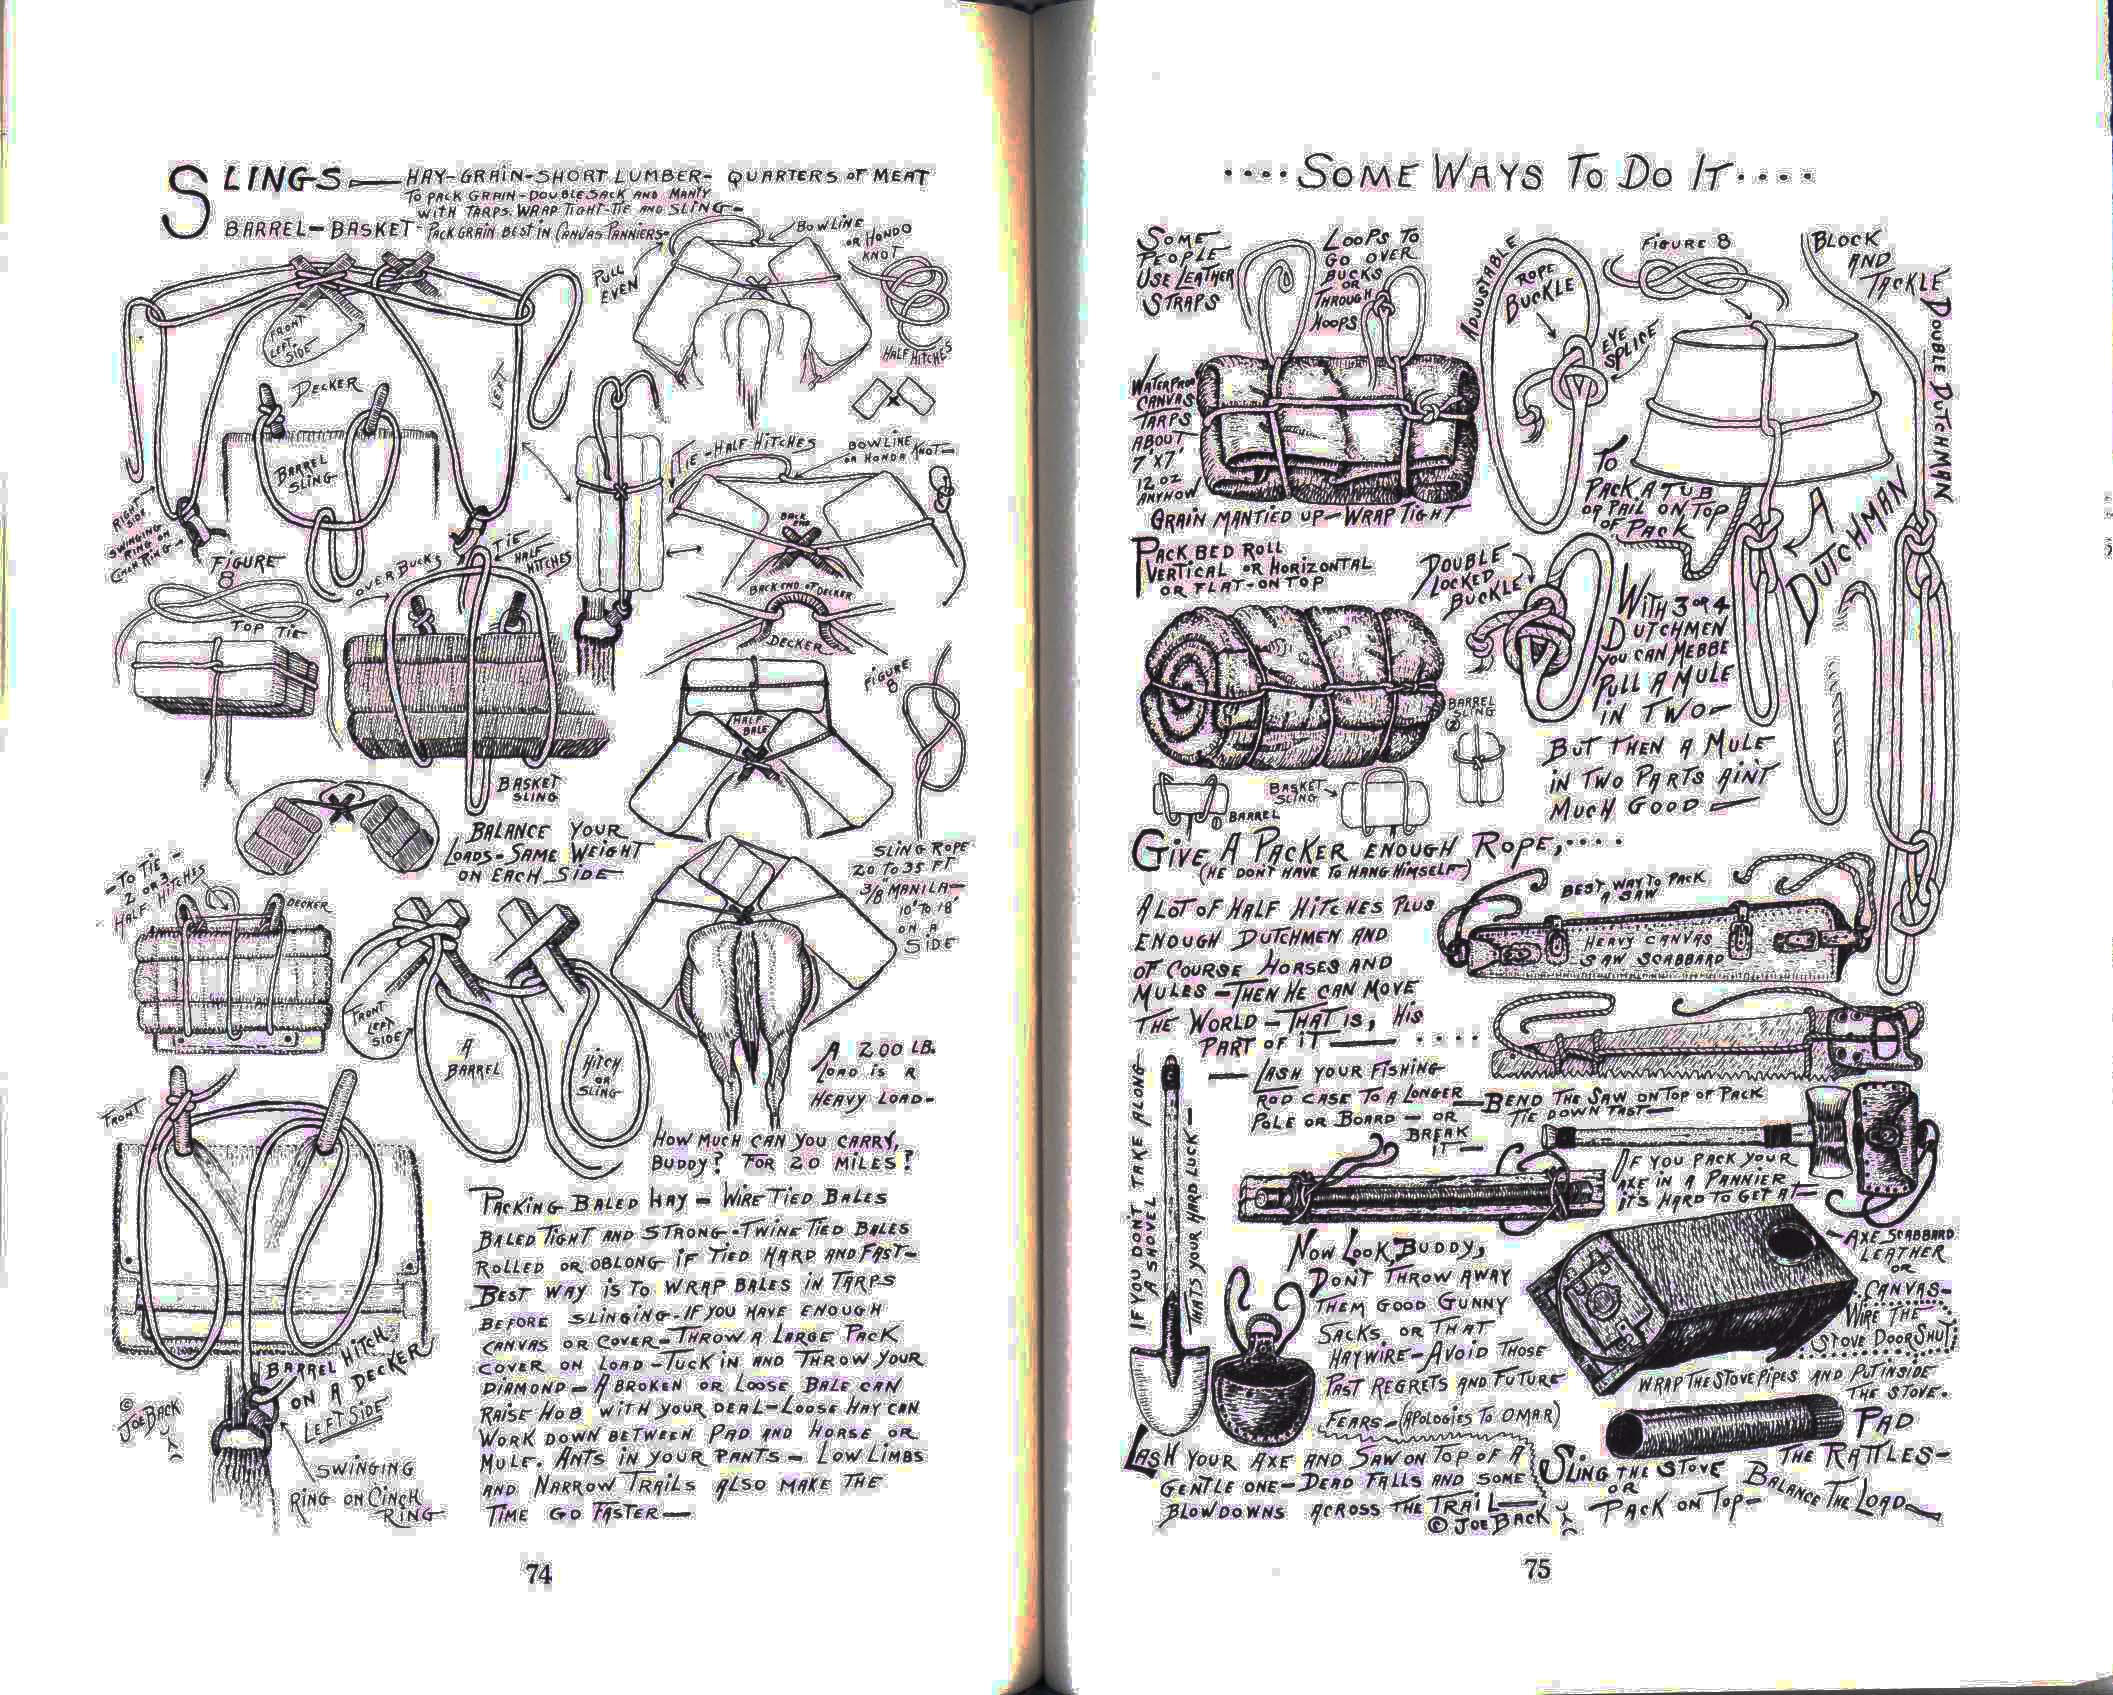 SLINGS — HAY-GRAIN-SHORT LUMBER- QUARTERS OF MEAT
TO PACK GRAIN-DOUBLE SACK AND MANTY
WITH TARPS. WRAP TIGHT-TIE AND SLING-
BARREL-BASKET- PACK GRAIN BEST IN CANVAS PANNIERS-
PULL
EVEN
BOWLINE
OR HONDO
KNOT
HALF HITCHES
FRONT
LEFT
SIDE
DECKER
LEFT
BARREL
SLING
RIGHT
SIDE
SWINGING
RING ON
CINCH RING
TIE-HALF HITCHES
BOWLINE
OR HONDA KNOT-
BACK
END
FIGURE
8
OVER BUCKS
TIE
HALF
HITCHES
BACK END OF DECKER
DECKER
TOP TIE
FIGURE
8
HALF
BALE
BASKET
SLING
BALANCE YOUR
LOADS-SAME WEIGHT
ON EACH SIDE-
SLING ROPE
20 TO 35 FT
3/8 MANILA-
10' TO 18'
ON A
SIDE
-TO TIE-
2 OR 3
HALF HITCHES
DECKER
FRONT
LEFT
SIDE
A
BARREL
HITCH
OR
SLING
A 200 LB.
LOAD IS A
HEAVY LOAD-
FRONT
HOW MUCH CAN YOU CARRY,
BUDDY? FOR 20 MILES?
PACKING BALED HAY - WIRE TIED BALES
BALED TIGHT AND STRONG-TWINE TIED BALES
ROLLED OR OBLONG IF TIED HARD AND FAST-
BEST WAY IS TO WRAP BALES IN TARPS
BEFORE SLINGING-IF YOU HAVE ENOUGH
CANVAS OR COVER-THROW A LARGE PACK
COVER ON LOAD-TUCK IN AND THROW YOUR
DIAMOND-A BROKEN OR LOOSE BALE CAN
RAISE HOB WITH YOUR DEAL-LOOSE HAY CAN
WORK DOWN BETWEEN PAD AND HORSE OR
MULE. ANTS IN YOUR PANTS- LOW LIMBS
AND NARROW TRAILS ALSO MAKE THE
TIME GO FASTER-
BARREL HITCH
ON A DECKER
LEFT SIDE
© JOE BACK
SWINGING
RING ON CINCH
RING
74
....SOME WAYS TO DO IT....
SOME
PEOPLE
USE LEATHER
STRAPS
LOOPS TO
GO OVER
BUCKS
OR
THROUGH
HOOPS
ADJUSTABLE
ROPE
BUCKLE
EYE
SPLICE
FIGURE 8
BLOCK
AND
TACKLE
DOUBLE DUTCHMAN
WATERPROOF
CANVAS
TARPS
ABOUT
7'X7'
12 OZ
ANYHOW
GRAIN MANTIED UP-WRAP TIGHT
TO
PACK A TUB
OR PAIL ON TOP
OF PACK
A
DUTCHMAN
PACK BED ROLL
VERTICAL OR HORIZONTAL
OR FLAT-ON TOP
DOUBLE
LOCKED
BUCKLE
WITH 3 OR 4
DUTCHMEN
YOU CAN MEBBE
PULL A MULE
IN TWO-
BARREL
SLING
(2)
BASKET
SLING
① BARREL
BUT THEN A MULE
IN TWO PARTS AIN'T
MUCH GOOD-
GIVE A PACKER ENOUGH ROPE,....
(HE DON'T HAVE TO HANG HIMSELF-)
A LOT OF HALF HITCHES PLUS
ENOUGH DUTCHMEN AND
OF COURSE HORSES AND
MULES-THEN HE CAN MOVE
THE WORLD-THAT IS, HIS
PART OF IT-....
BEST WAY TO PACK
A SAW
HEAVY CANVAS
SAW SCABBARD
IF YOU DON'T TAKE ALONG
A SHOVEL
THAT'S YOUR HARD LUCK-
-LASH YOUR FISHING
ROD CASE TO A LONGER
POLE OR BOARD - OR
BREAK
IT-
-BEND THE SAW ON TOP OF PACK
TIE DOWN FAST-
IF YOU PACK YOUR
AXE IN A PANNIER
IT'S HARD TO GET AT-
AXE SCABBARD
LEATHER
OR
CANVAS-
NOW LOOK BUDDY,
DON'T THROW AWAY
THEM GOOD GUNNY
SACKS, OR THAT
HAYWIRE-AVOID THOSE
PAST REGRETS AND FUTURE
FEARS-(APOLOGIES TO OMAR)
WIRE THE
STOVE DOOR SHUT
WRAP THE STOVE PIPES AND PUT INSIDE
THE STOVE.
PAD
THE RATTLES-
LASH YOUR AXE AND SAW ON TOP OF A
GENTLE ONE-DEAD FALLS AND SOME
BLOWDOWNS ACROSS THE TRAIL-
© JOE BACK
SLING THE STOVE
OR
PACK ON TOP-
BALANCE THE LOAD
75